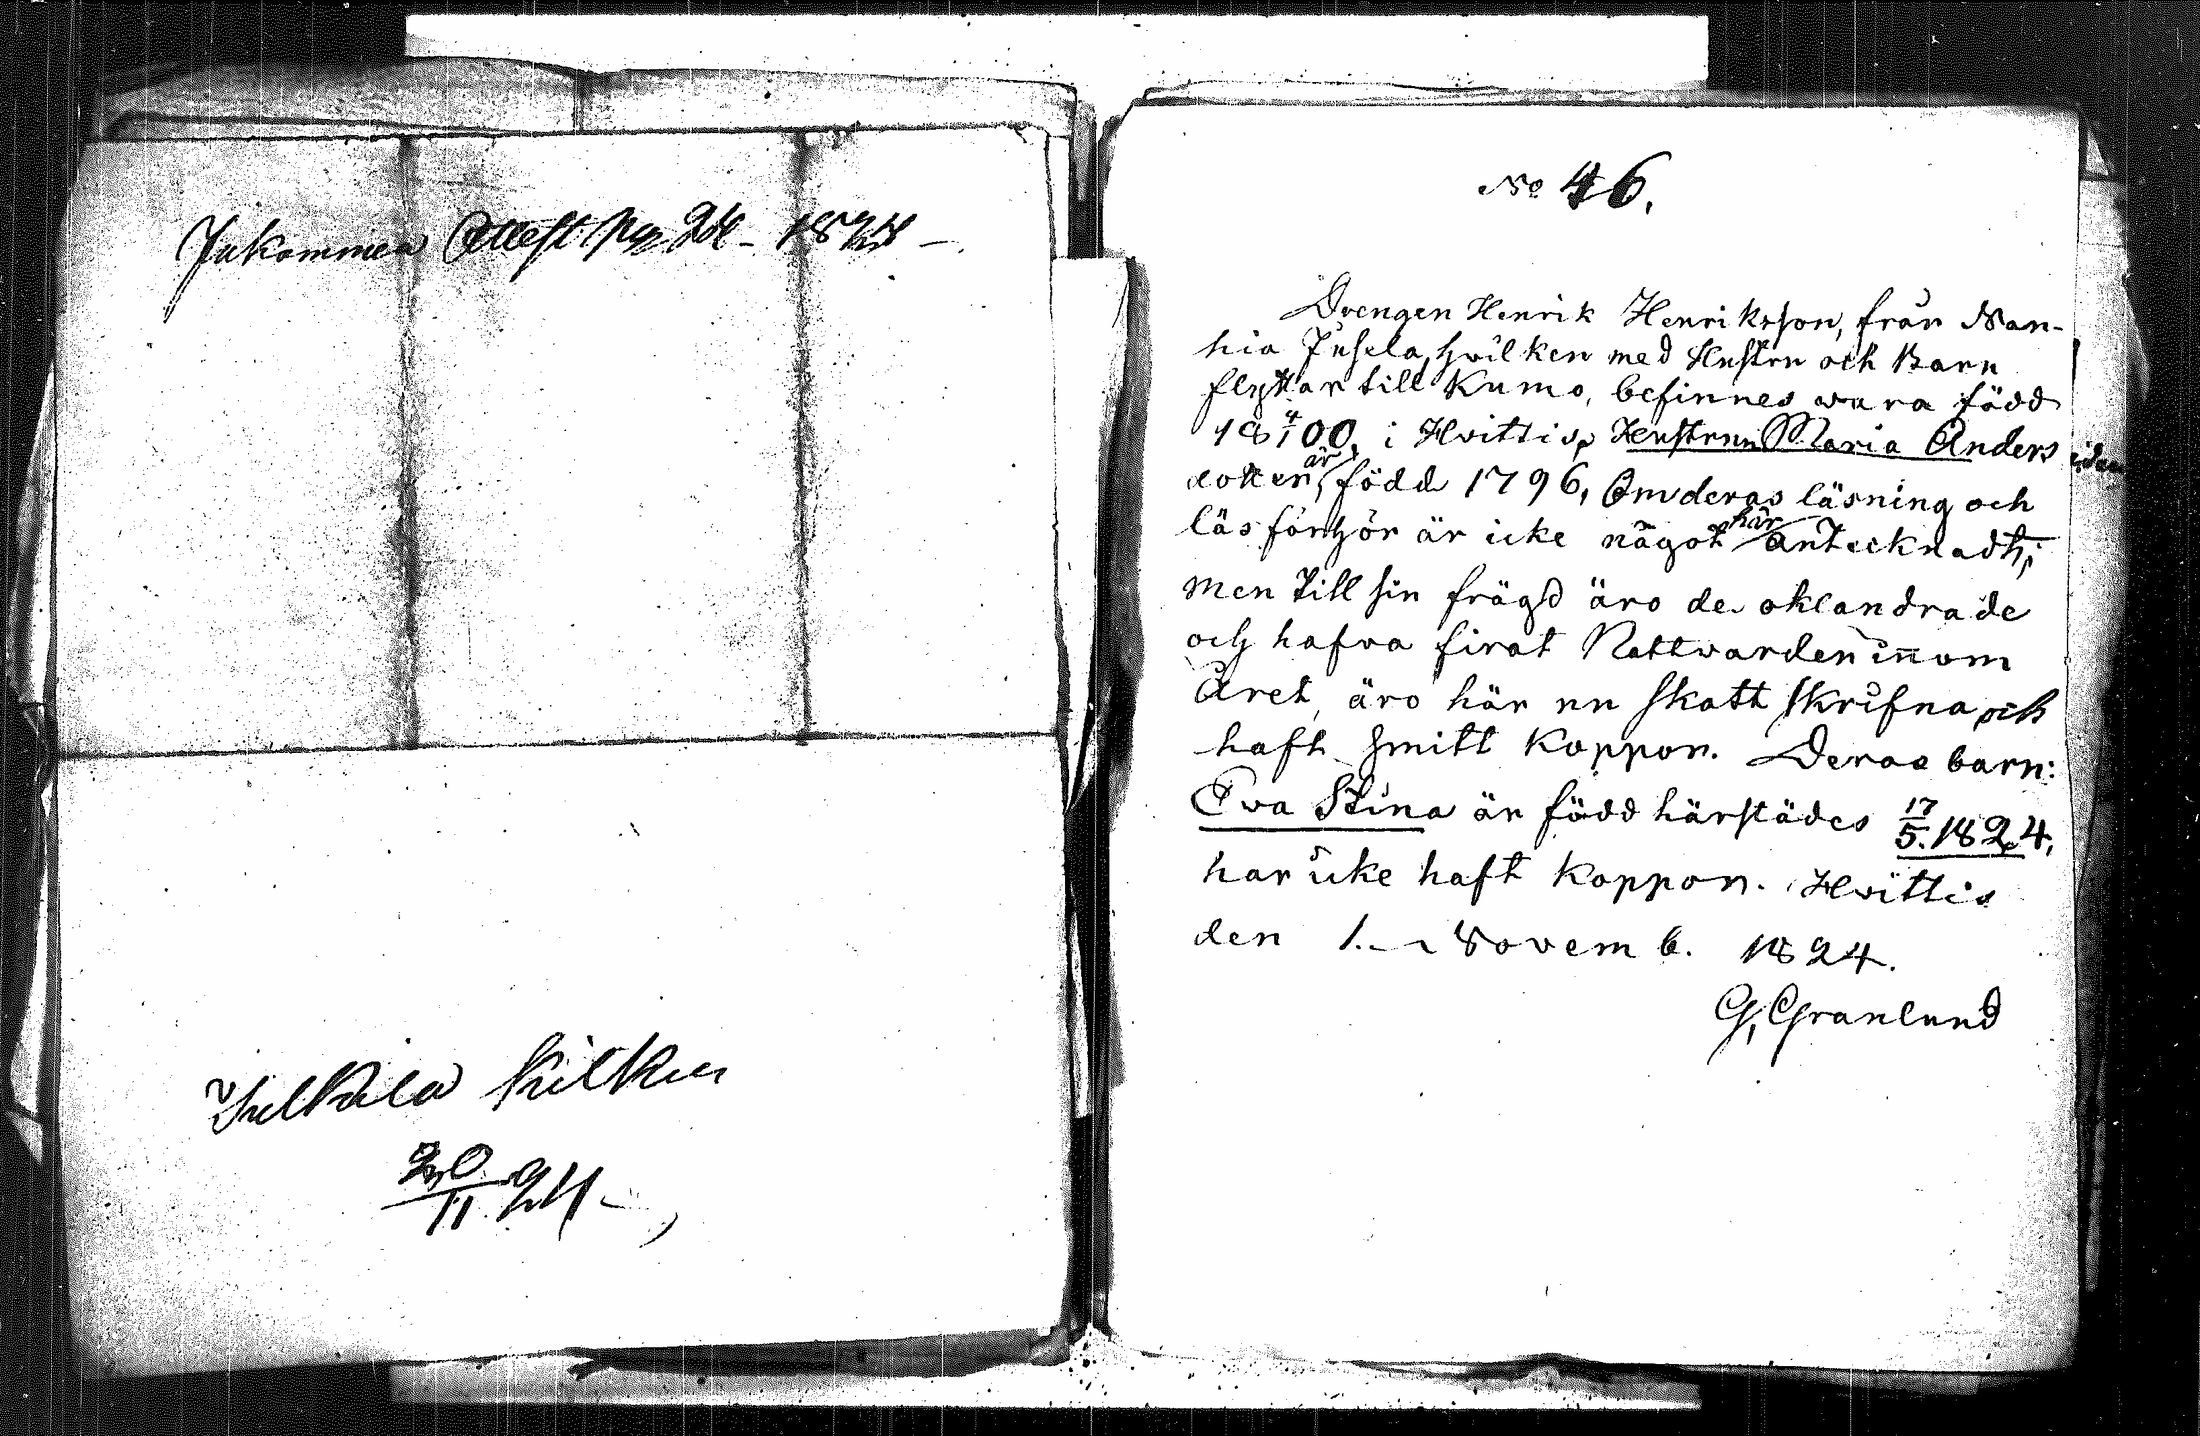 Inkommen Attest No 24 - 1824 -
Kilkin
20/11 24 -
No 46.
Drengen Henrik Henriksson, från Man-
hia Jusela, hvilken med Hustru och Barn
flyttar till Kumo, befinnes wara född
18 4/1 00, i Hvittis, Hustrun Maria Anders
dotter, är född 1796, Om deras läsning och
läsförhör är icke något här antecknadt;
men till sin frägd äro de oklandrade
och hafva firat Nattvarden innom
Året, äro här nu skatt skrifna och
haft smitt koppor. Deras barn:
Eva Stina är född härstädes 17/5. 1824,
har icke haft koppor. Hvittis
den 1. Novemb. 1824.
G. Granlund